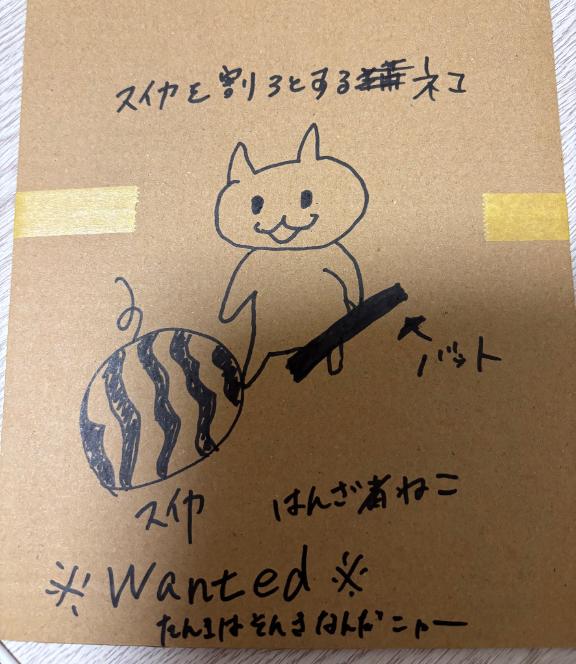 スイカを割ろとするネコ
バット
スイカ
はんざ者ねこ
※Wanted※
たんきはそんきなんだニャー